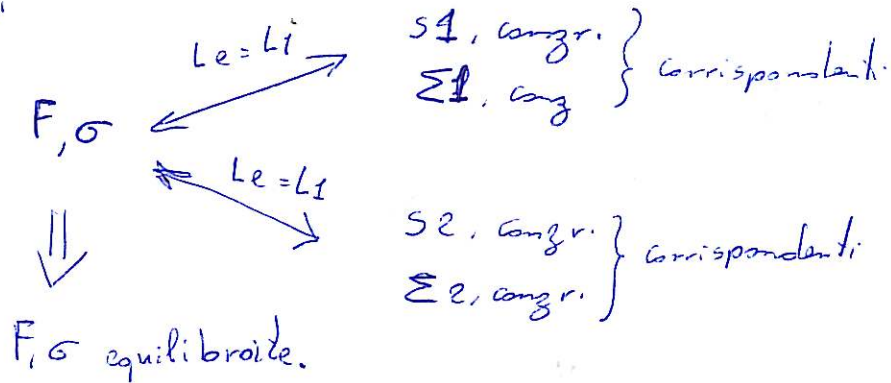 Le = Li
S1, congr.
Σ1, cong
corrispondenti
F, σ
Le = L1
S2, congr.
Σ2, congr.
corrispondenti
F, σ equilibrate.